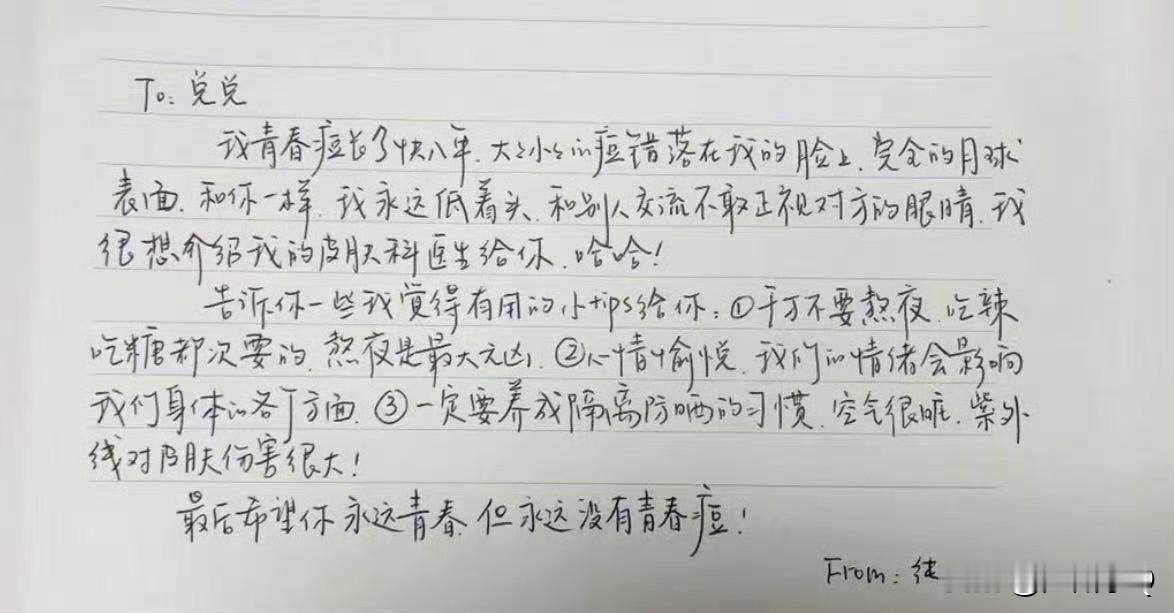 To: 兑兑
我青春痘长了快八年、大大小小的痘错落在我的脸上、完全的月球
表面、和你一样、我永远低着头、和别人交流不敢正视对方的眼睛、我
很想介绍我的皮肤科医生给你、哈哈!
告诉你一些我觉得有用的小tips给你:①千万不要熬夜、吃辣
吃糖都次要的、熬夜是最大元凶、②心情愉悦、我们的情绪会影响
我们身体的各个方面、③一定要养成隔离防晒的习惯、空气很脏、紫外
线对皮肤伤害很大!
最后希望你永远青春、但永远没有青春痘!
From: 纯